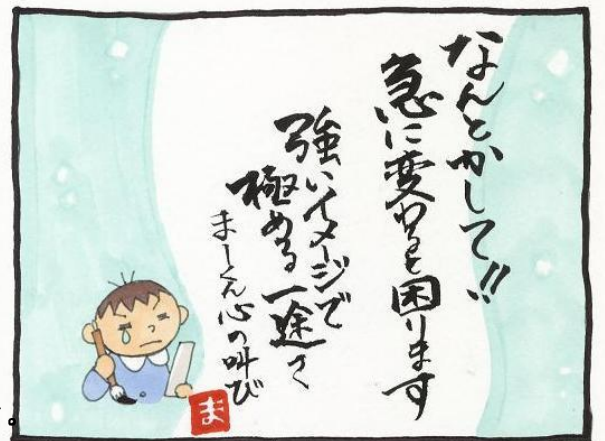 なんとかして!!
急に変わると困ります
強いイメージで
極める一途さ
まーくん心の叫び
ま